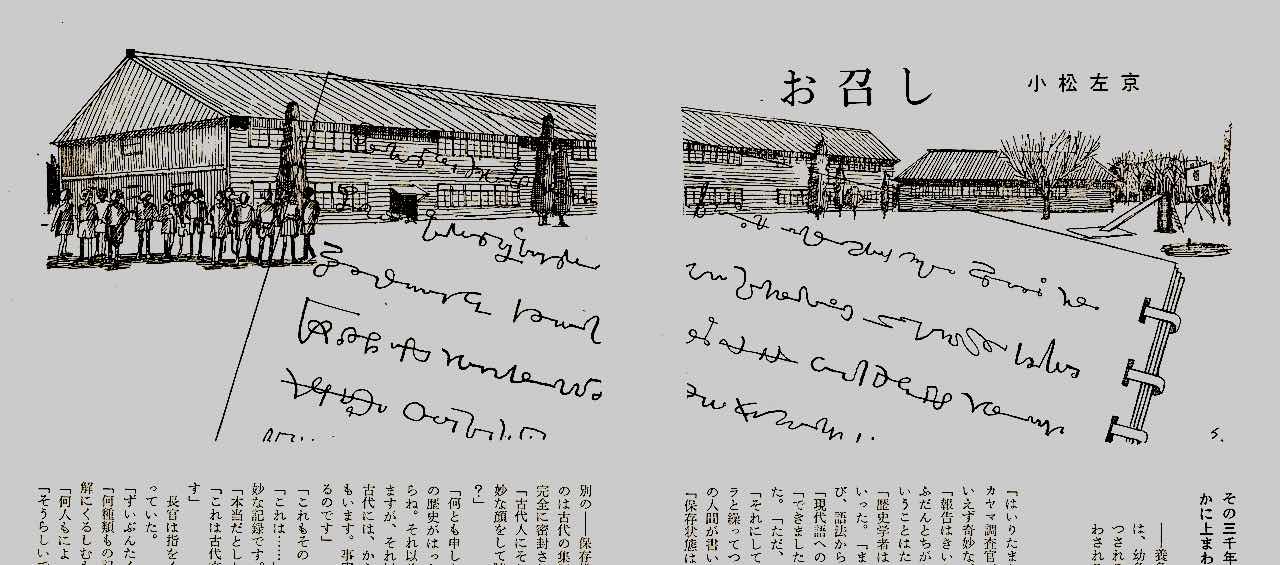 お召し
小松左京
その三千年
かに上まわ
――養
は、幼
つされ
わされ
「はいうたま
カヤマ調査官
いえず奇妙な
「報告はきい
ふだんとちが
うことはた
「歴史学者は
いった。「ま
び、語法から
「現代語への
「できました
た。「ただ、
「それにして
ラと繰ってつ
の人間が書い
「保存状態は
別の――保存
のは古代の集
完全に密封さ
「古代人にそ
妙な顔をして
？」
「何とも申し
の歴史がはっ
らね。それ以
ますが、それ
古代には、か
もいます。事
るのです」
「これもその
「これは……
妙な記録です。
「本当だとし
「これは古代
す」
長官は指を
っていた。
「ずいぶんたく
「何種類もの
解にくるしむ
「何人もによ
「そうらしいで